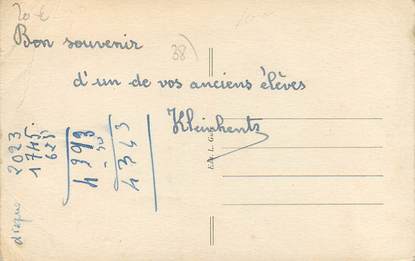 20 €
Bon souvenir
38)
d'un de vos anciens élèves
Kleinhentz
2023
1745
625
4393
- 50
4343